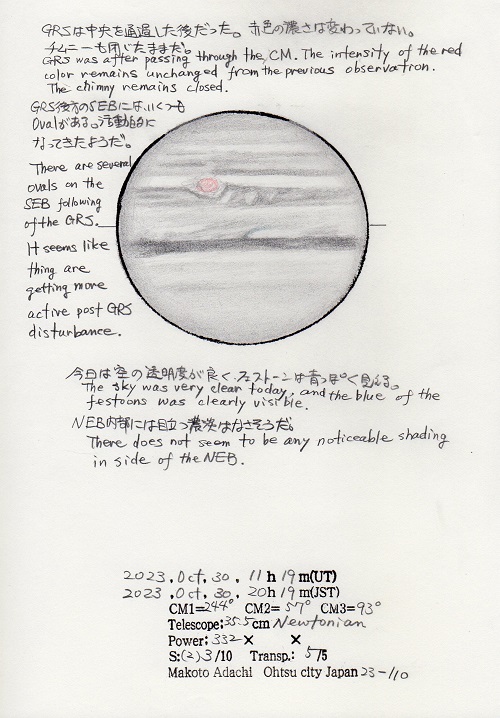 GRSは中央を通過した後だった。赤色の濃さは変わっていない。
チムニーも閉じたままだ。
GRS was after passing through the CM. The intensity of the red
color remains unchanged from the previous observation.
The chimny remains closed.
GRS後方のSEBには、いくつも
Ovalがある。活動的に
なってきたようだ。
There are several
ovals on the
SEB following
of the GRS.
It seems like
thing are
getting more
active post GRS
disturbance.
今日は空の透明度が良く、フェストーンは青っぽく見える。
The sky was very clear today, and the blue of the
festoons was clearly visible.
NEB内部には目立つ濃淡はなさそうだ。
There does not seem to be any noticeable shading
in side of the NEB.
2023. Oct. 30. 11h 19m(UT)
2023. Oct. 30. 20h 19m(JST)
CM1=244° CM2= 57° CM3=93°
Telescope:35.5cm Newtonian
Power: 332× ×
S:(2)3/10 Transp.: 5/5
Makoto Adachi Ohtsu city Japan 23-110